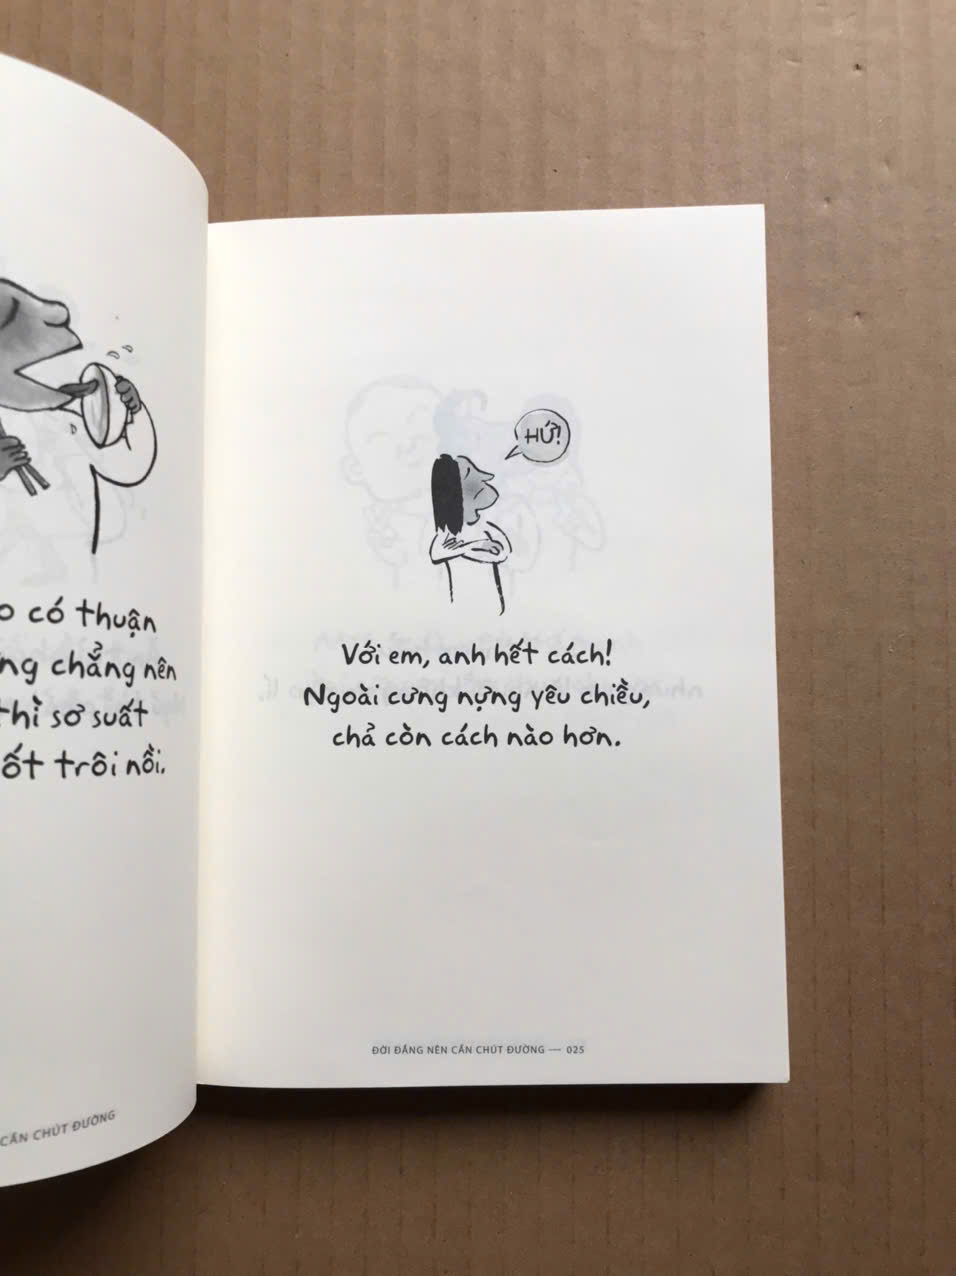 có thuận
chẳng nên
thì sơ suất
trôi nồi.
CẦN CHÚT ĐƯỜNG
HỨ!
Với em, anh hết cách!
Ngoài cưng nựng yêu chiều,
chả còn cách nào hơn.
ĐỜI ĐẮNG NÊN CẦN CHÚT ĐƯỜNG — 025